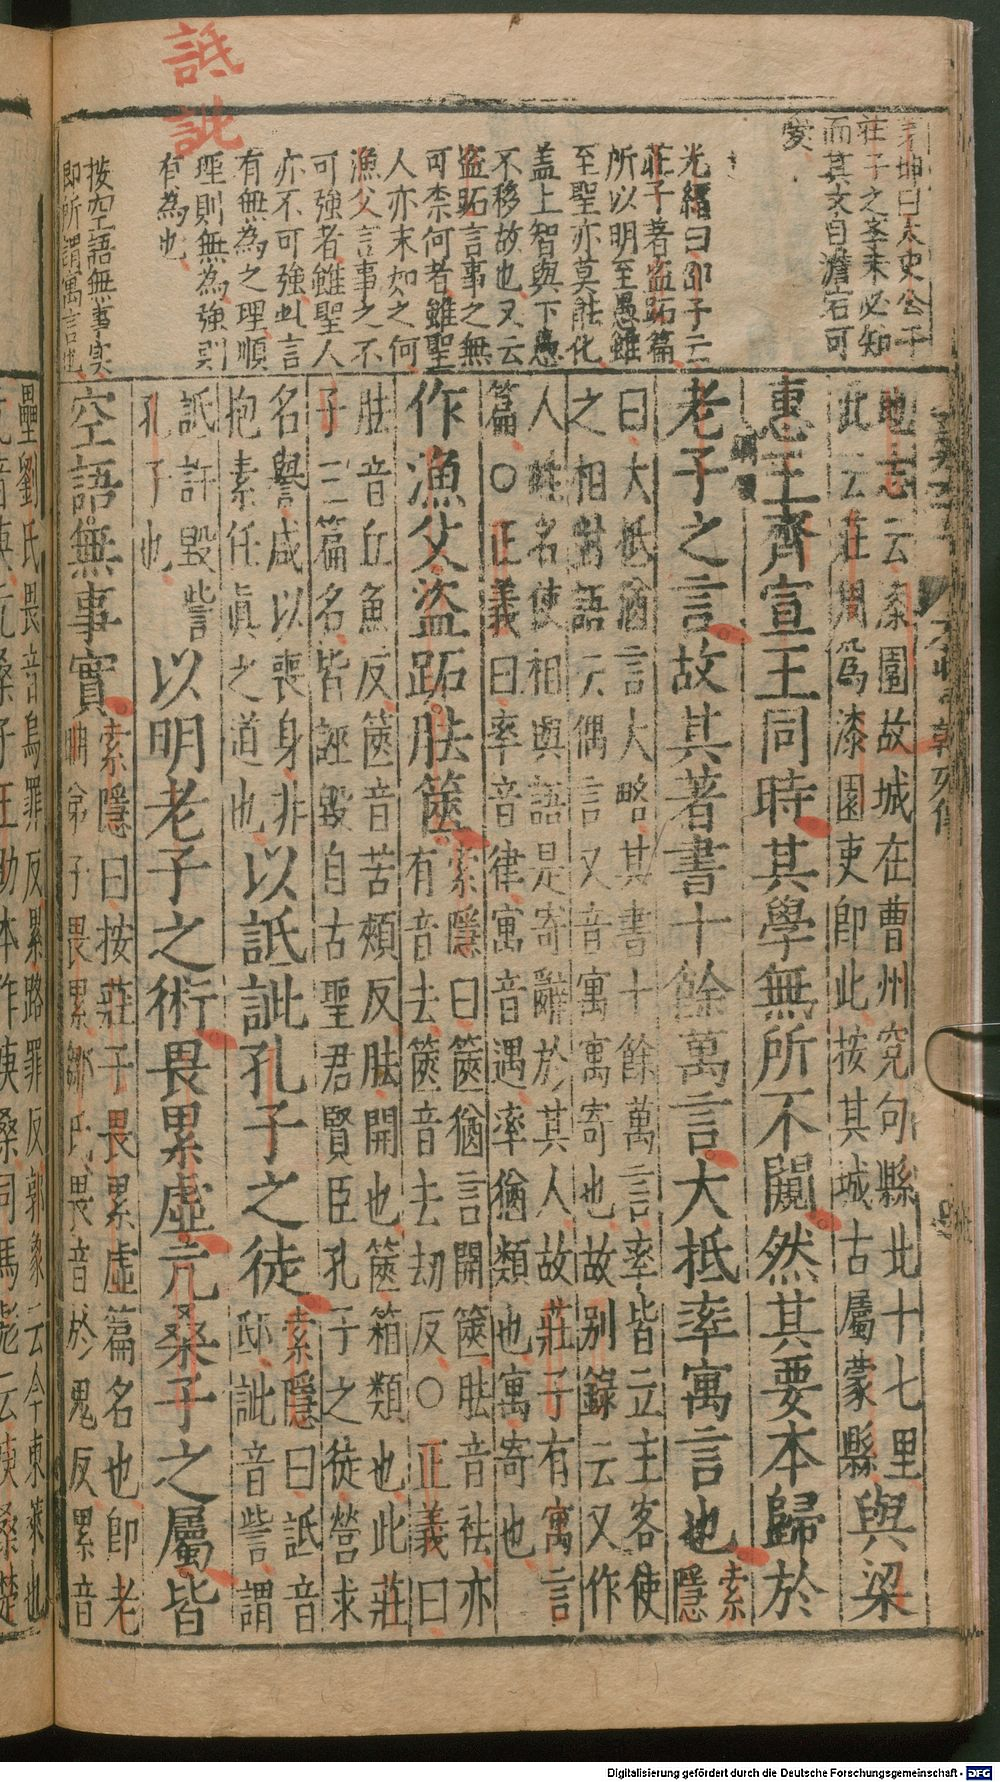 詆
訿
茅坤曰太史公于
莊子之学未必知
而其文自澹宕可
愛
光縉曰邵子云
莊子著盗跖篇
所以明至愚雖
至聖亦莫能化
盖上智與下愚
不移故也又云
盗跖言事之無
可柰何者雖聖
人亦末如之何
漁父言事之不
可強者雖聖人
亦不可強此言
有無為之理順
理則無為強則
有為也
按空語無事实
即所謂寓言也
地志云漆園故城在曹州寃句縣北十七里
此云莊周爲漆園吏即此按其城古屬蒙縣
與梁
惠王齊宣王同時其學無所不闚然其要本歸於
老子之言故其著書十餘萬言大抵率寓言也
索
隱
曰大抵猶言大略其書十餘萬言率皆立主客使
之相對語云偶言又音寓寓寄也故别錄云又作
人姓名使相與語是寄辭於其人故莊子有寓言
篇○正義曰率音律寓音遇率猶類也寓寄也
作漁父盜跖胠篋
索隱曰篋猶言開篋胠音祛亦
有音去篋音去劫反○正義曰
胠音丘魚反篋音苦頰反胠開也篋箱類也此莊
子三篇名皆誣毀自古聖君賢臣孔子之徒營求
名譽咸以喪身非
抱素任眞之道也
以詆訿孔子之徒
索隱曰詆音
邸訿音訾謂
詆訐毀訾
孔子也
以明老子之術畏累虛亢桑子之屬皆
空語無事實
索隱曰按莊子畏累虛篇名也即老
聃弟子畏累鄒氏畏音於鬼反累音
壘劉氏畏音烏罪反累路罪反郭象云今東萊也
Digitalisierung gefördert durch die Deutsche Forschungsgemeinschaft - DFG